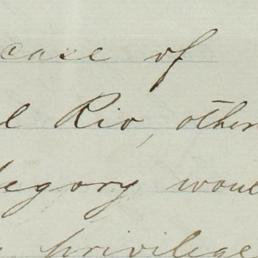 case of
l Rio, other
legory woul
privilege